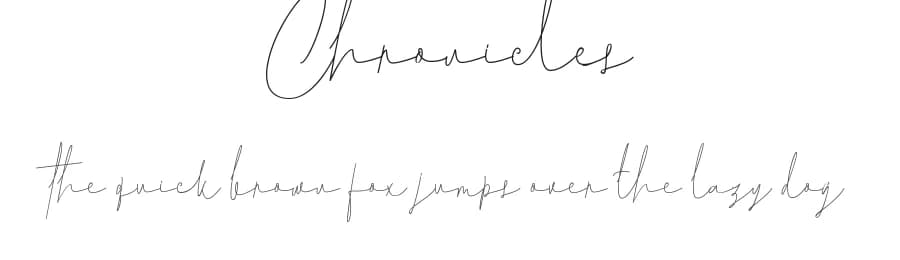 Chronicles
the quick brown fox jumps over the lazy dog